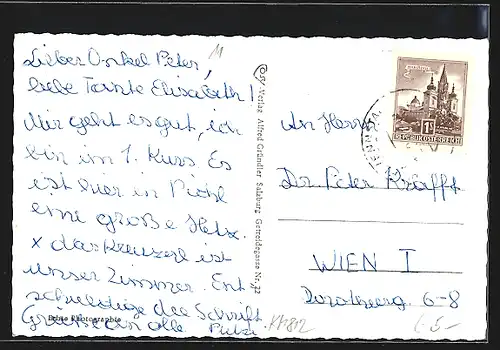 Lieber Onkel Peter,
liebe Tante Elisabeth!
Mir geht es gut, ich
bin im 1. Kurs Es
ist hier in
eine große Hetz.
x das Kreuzerl ist
unser Zimmer. Ent-
schuldige die Schrift
Grüße an alle Putzi
Echte Photographie
KK812
Verlag Alfred Gründler Salzburg Getreidegasse Nr. 32
REPUBLIK ÖSTERREICH
An Herrn
Dr. Peter Krafft
WIEN I
Dorotheerg. 6-8